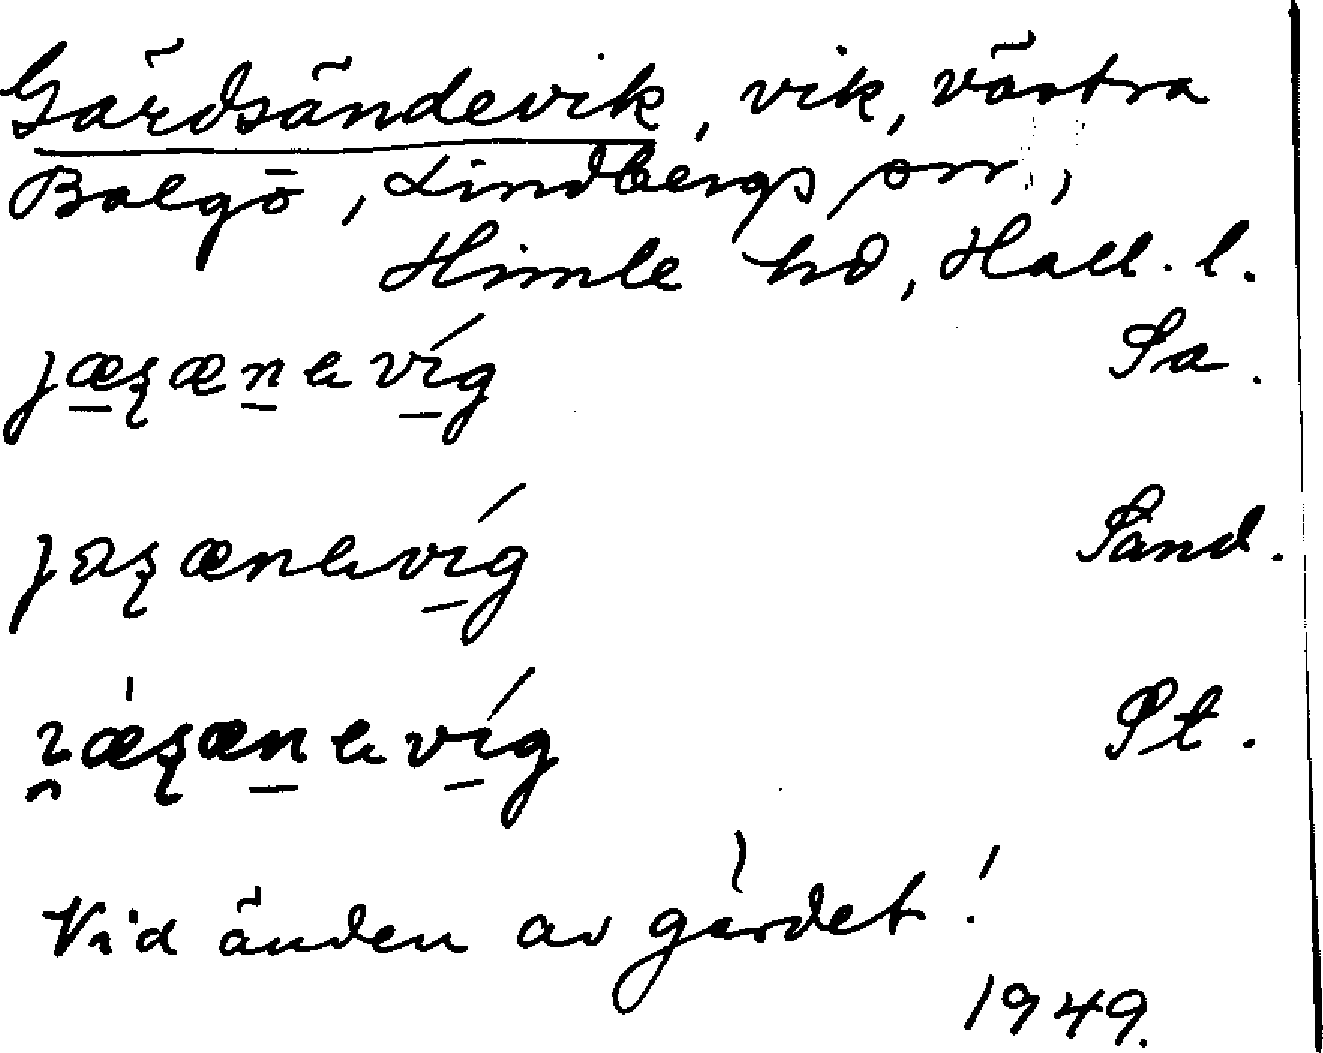 Gärdsändevik, vik, västra
Balgö, Lindbergs sn,
Himle hd, Hall. l.
Sa.
Sand.
St.
Vid änden av gärdet!
1949.